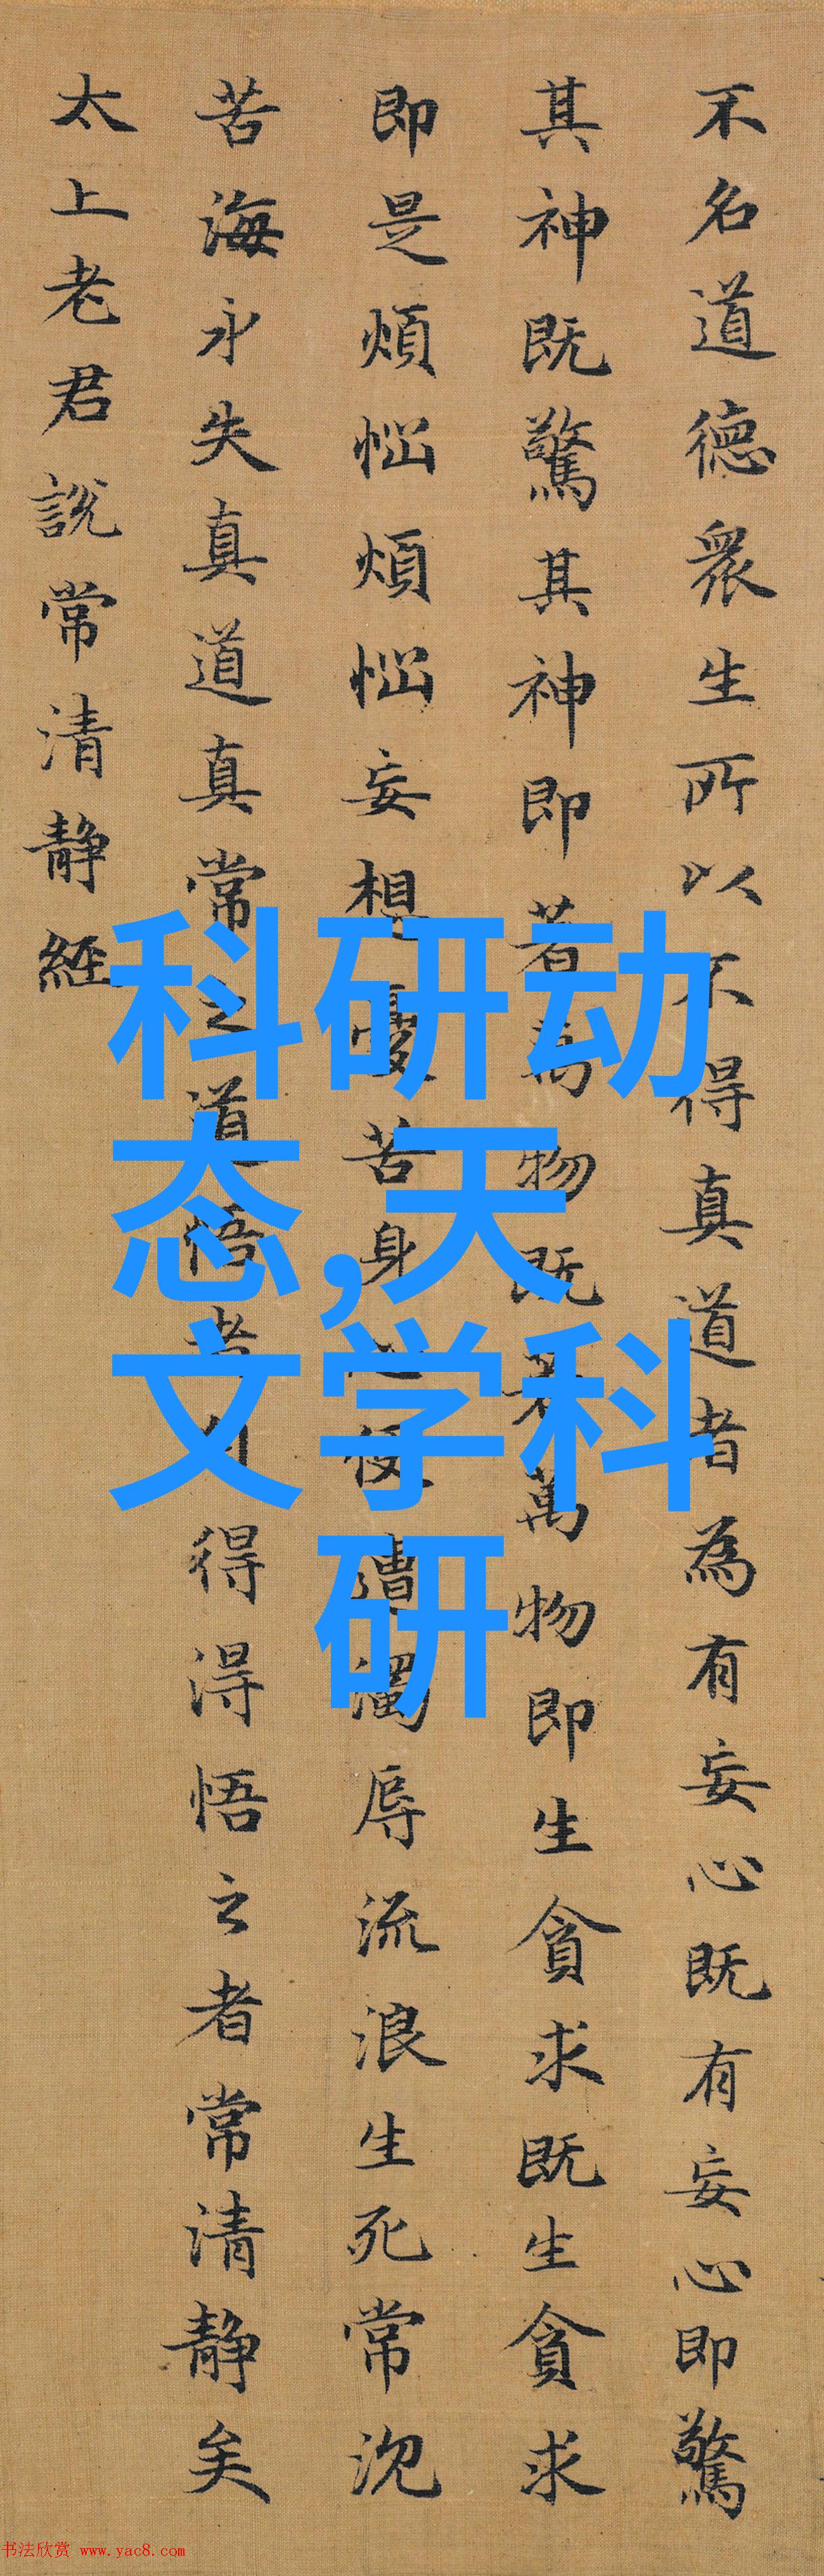 不名道德眾生所以不得真道者為有妄心既有妄心即驚
其神既驚其神即著萬物既著萬物即生貪求既生貪求
即是煩惱煩惱妄想憂苦身心便遭濁辱流浪生死常沉
苦海永失真道真常之道悟者自得得悟之者常清靜矣
太上老君說常清靜經
科研动
态,天
文学科
研
书法欣赏 www.yac8.com